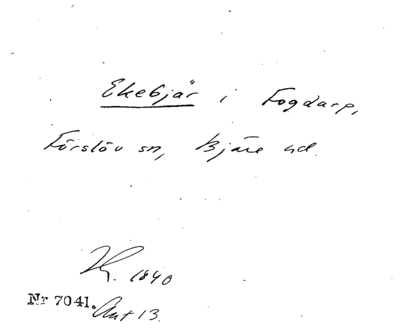 Ekebjär i Fogdarp,
Förslöv sn, Bjäre hd.
1840
Nr 7041. Akt 13.